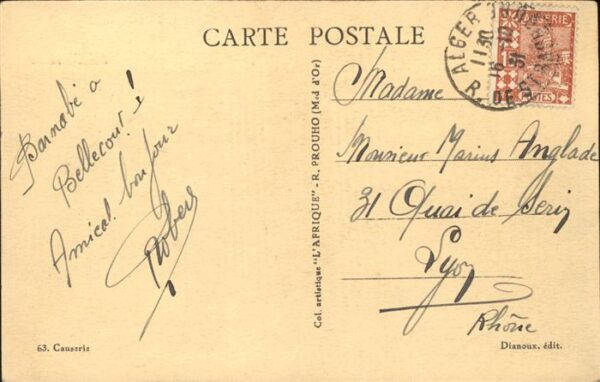 CARTE POSTALE
Barnabé a
Bellecour!
Amical bonjour
Robert
Col. artistique "L'AFRIQUE" - R. PROUHO (Med d'Or)
ALGERIE
ALGER
1130
16
R. DE STRASBOURG
Madame
Monsieur Marius Anglade
31 Quai de Serin
Lyon
Rhône
63. Causerie
Dianoux, édit.